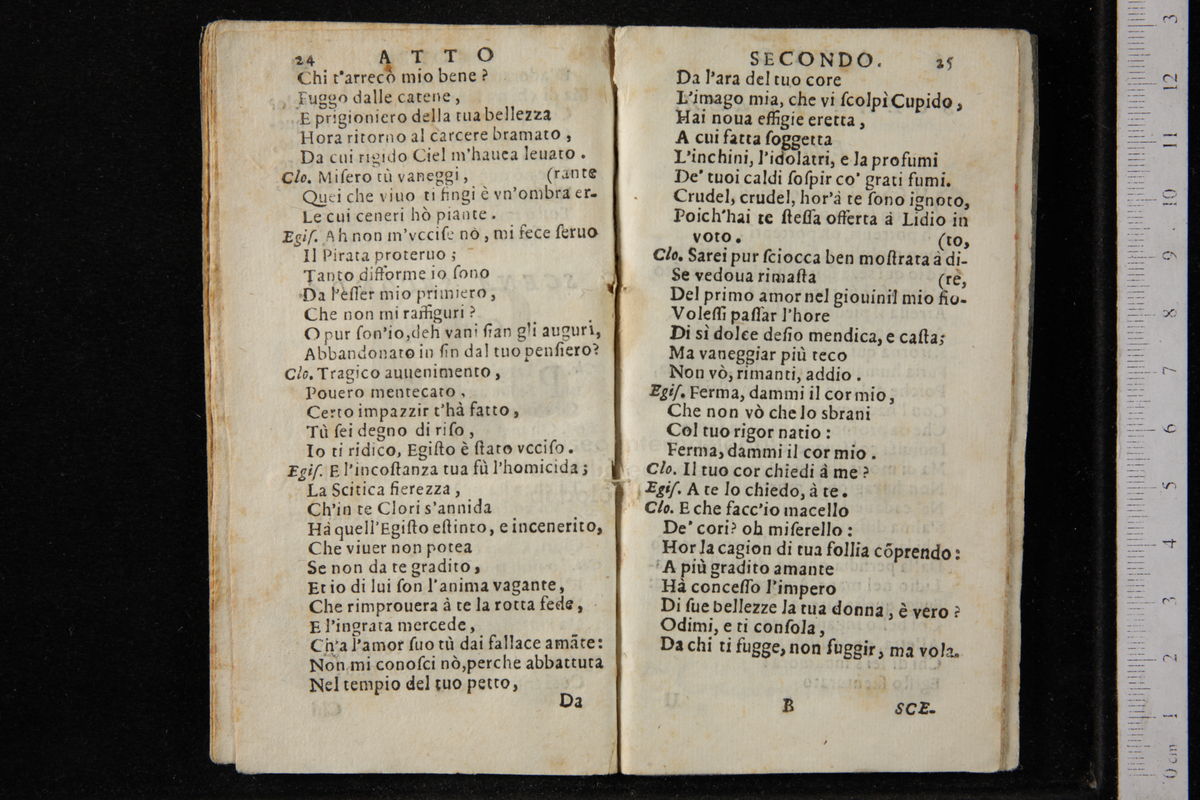 24 ATTO
Chi t'arrecò mio bene?
Fuggo dalle catene,
E prigioniero della tua bellezza
Hora ritorno al carcere bramato,
Da cui rigido Ciel m'hauea leuato.
Clo. Miſero tù vaneggi, (rante
Quei che viuo ti fingi è vn'ombra er-
Le cui ceneri hò piante.
Egiſ. Ah non m'vcciſe nò, mi fece ſeruo
Il Pirata proteruo;
Tanto difforme io ſono
Da l'èſſer mio primiero,
Che non mi raffiguri?
O pur ſon'io, deh vani ſian gli auguri,
Abbandonato in fin dal tuo penſiero?
Clo. Tragico auuenimento,
Pouero mentecato,
Certo impazzir t'hà fatto,
Tù ſei degno di riſo,
Io ti ridico, Egiſto è ſtato vcciſo.
Egiſ. E l'incoſtanza tua fù l'homicida;
La Scitica fierezza,
Ch'in te Clori s'annida
Hà quell'Egiſto eſtinto, e incenerito,
Che viuer non potea
Se non da te gradito,
Et io di lui ſon l'anima vagante,
Che rimprouera à te la rotta fede,
E l'ingrata mercede,
Ch'a l'amor ſuo tù dai fallace amãte:
Non mi conoſci nò, perche abbattuta
Nel tempio del tuo petto,
Da
SECONDO. 25
Da l'ara del tuo core
L'imago mia, che vi ſcolpì Cupido,
Hai noua effigie eretta,
A cui fatta ſoggetta
L'inchini, l'idolatri, e la profumi
De' tuoi caldi ſoſpir co' grati fumi.
Crudel, crudel, hor'à te ſono ignoto,
Poich'hai te ſteſſa offerta à Lidio in
voto. (to,
Clo. Sarei pur ſciocca ben moſtrata à di-
Se vedoua rimaſta (re,
Del primo amor nel giouinil mio fio-
Voleſſi paſſar l'hore
Di sì dolce deſio mendica, e caſta;
Ma vaneggiar più teco
Non vò, rimanti, addio.
Egiſ. Ferma, dammi il cor mio,
Che non vò che lo sbrani
Col tuo rigor natio:
Ferma, dammi il cor mio.
Clo. Il tuo cor chiedi à me?
Egiſ. A te lo chiedo, à te.
Clo. E che facc'io macello
De' cori? oh miſerello:
Hor la cagion di tua follia cõprendo:
A più gradito amante
Hà conceſſo l'impero
Di ſue bellezze la tua donna, è vero?
Odimi, e ti conſola,
Da chi ti fugge, non fuggir, ma vola.
B SCE-